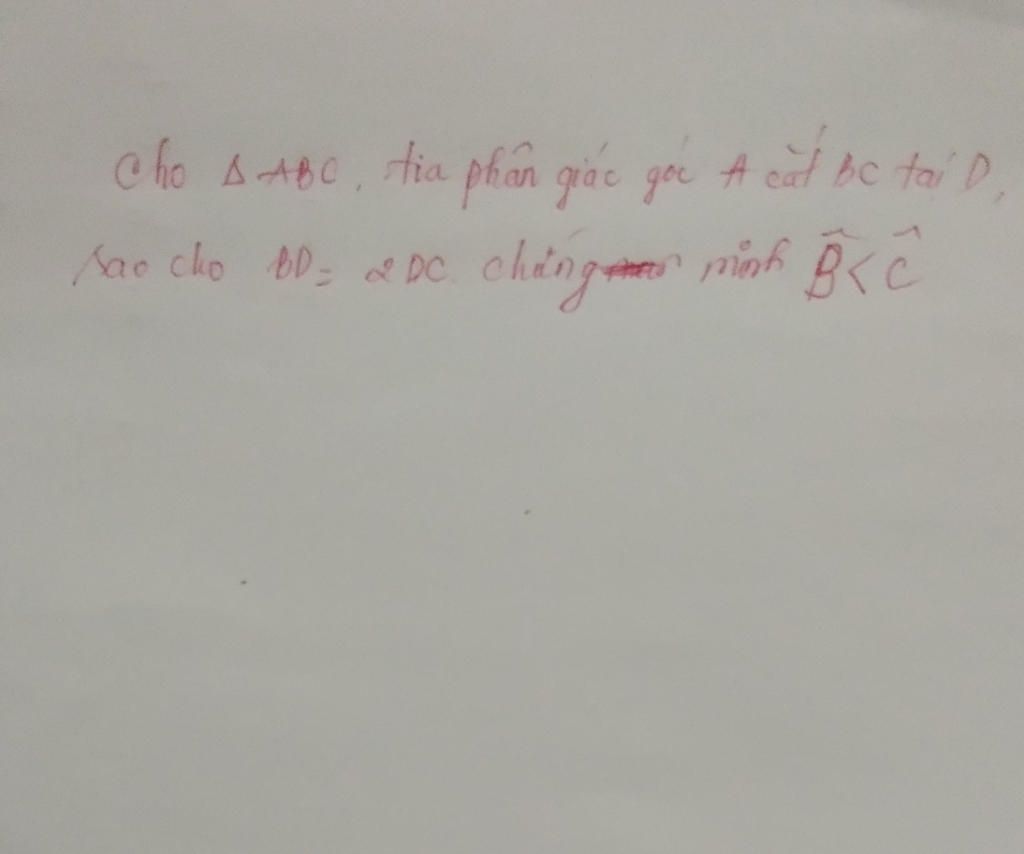 Cho Δ ABC, tia phân giác góc A cắt BC tại D,
sao cho BD = 2DC. chứng minh B̂ < Ĉ